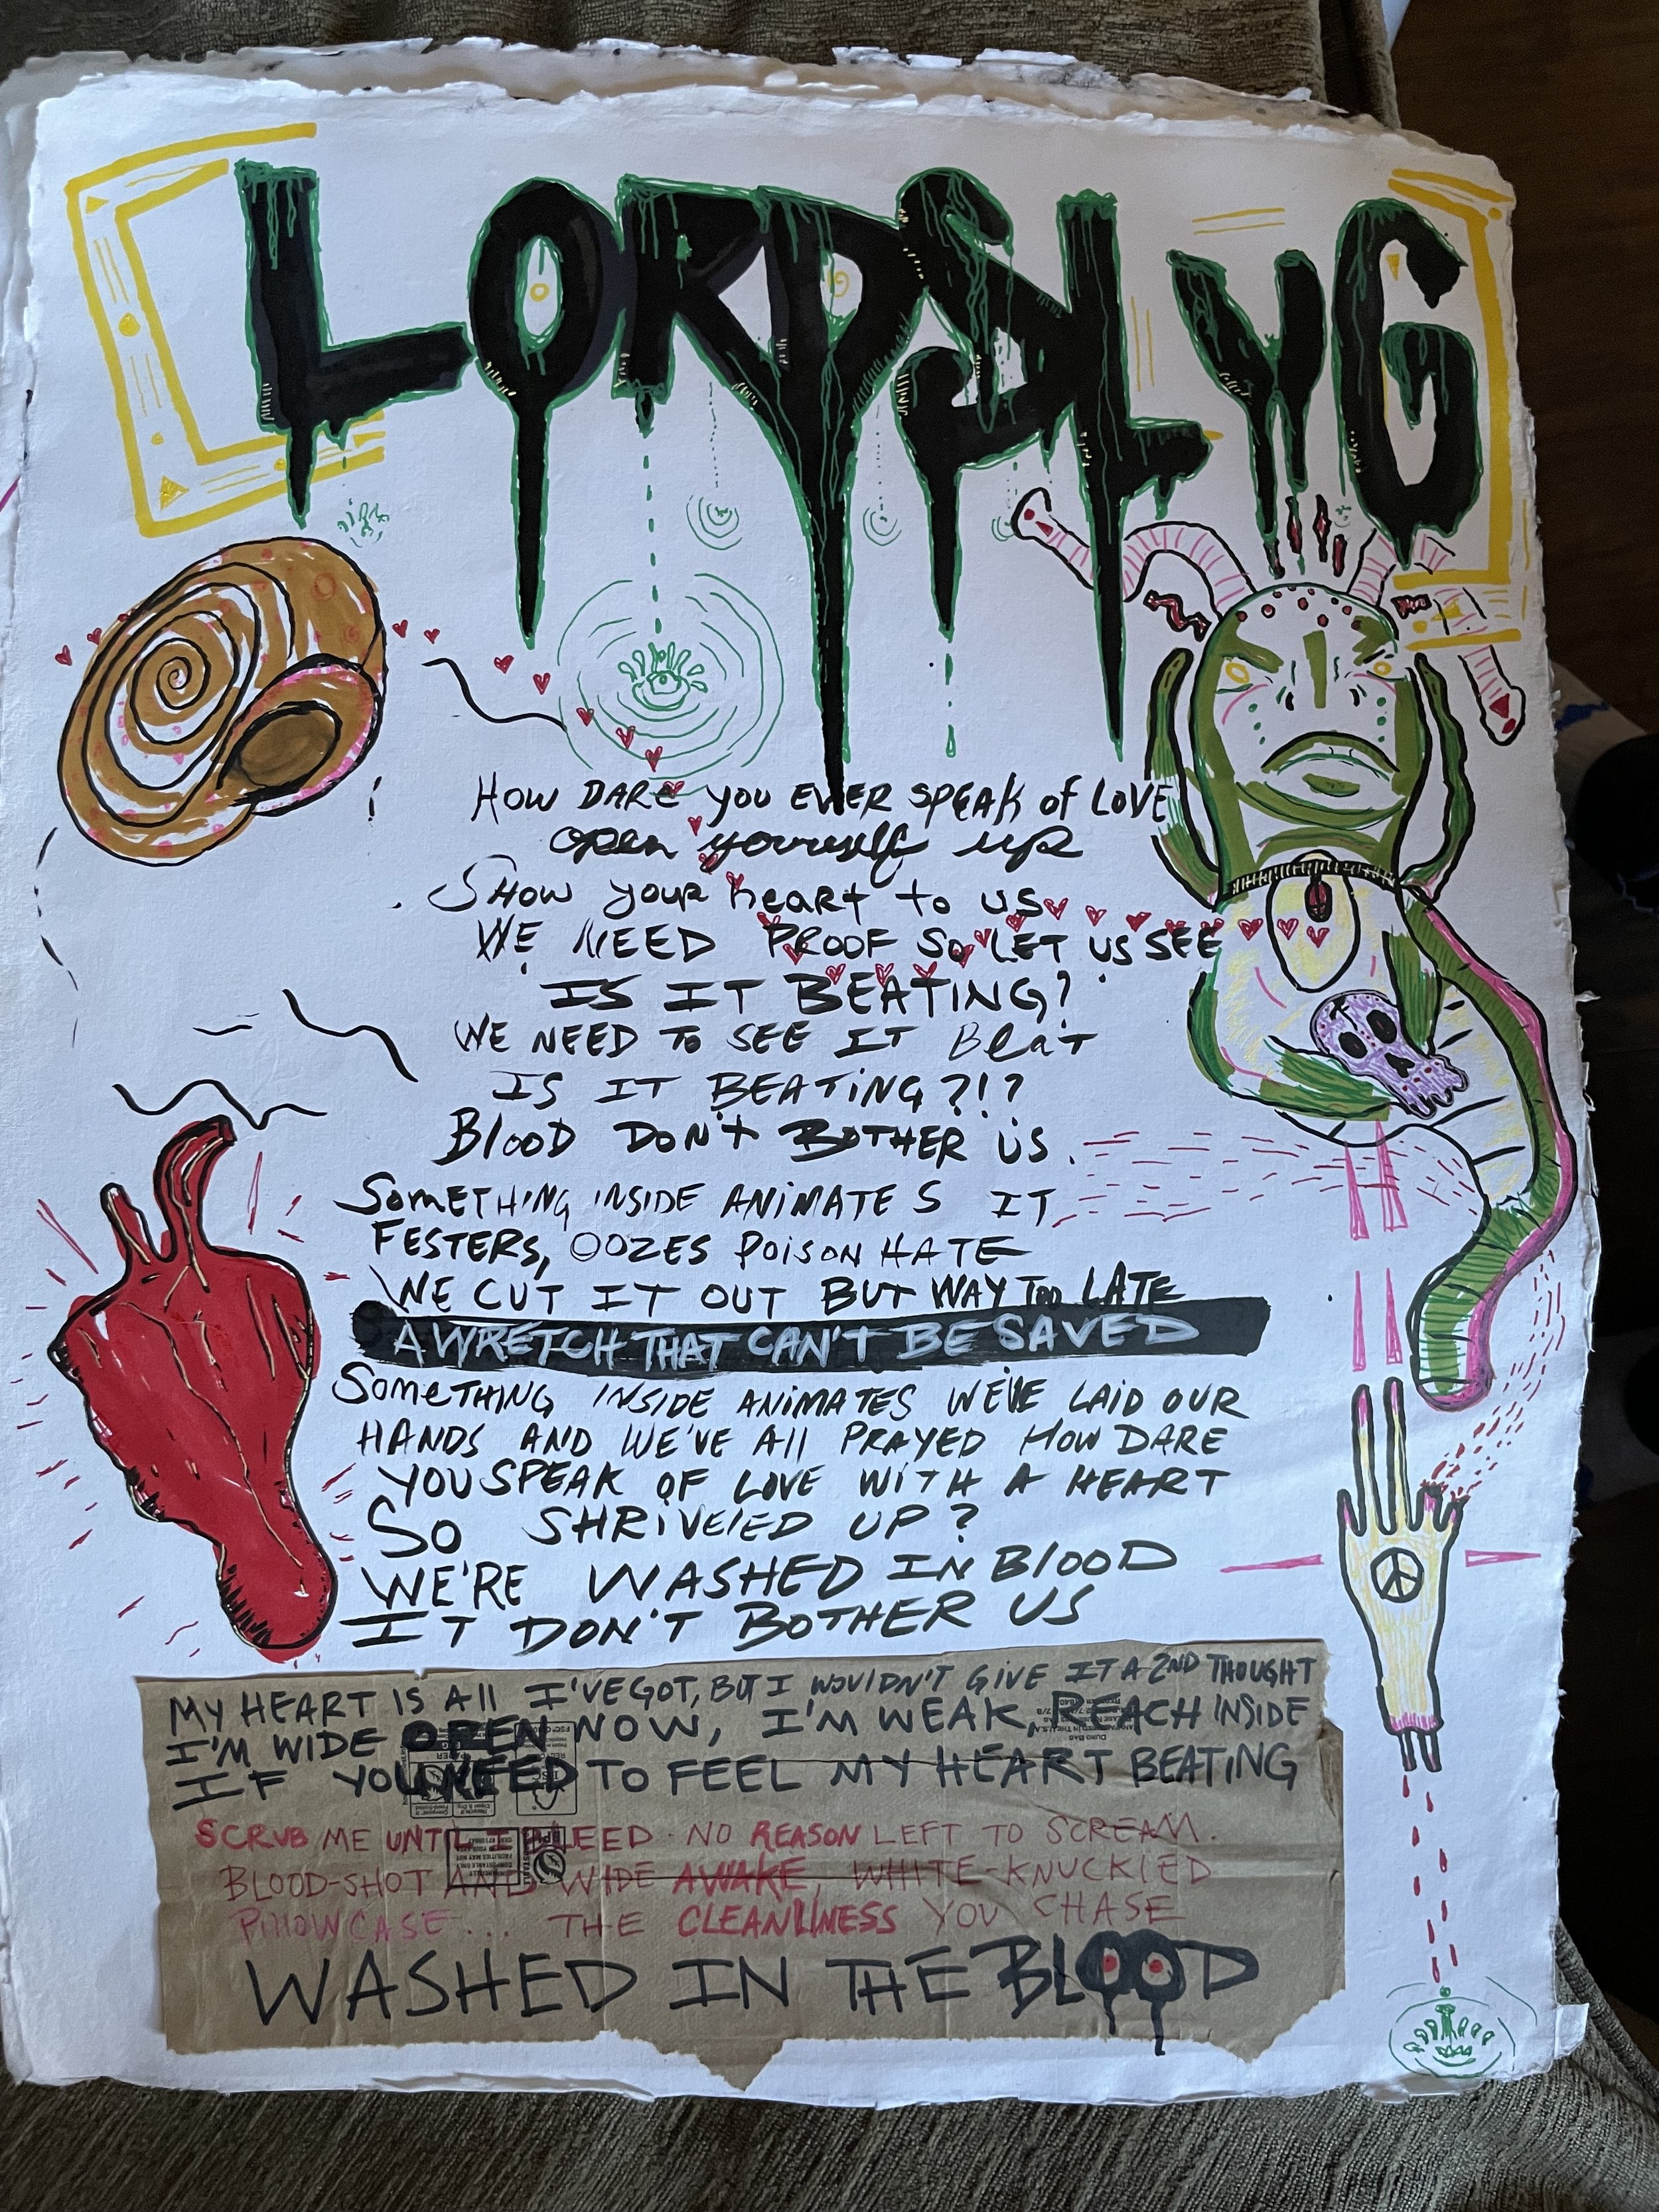 LORDSLUG
HOW DARE YOU EVER SPEAK of LOVE
open yourself up
SHOW your heart to us
WE NEED PROOF SO LET US SEE
IS IT BEATING?
WE NEED TO SEE IT BeaT
IS IT BEATING?!?
BlooD DON't BOTHER US.
SOMETHING INSIDE ANIMATES IT
FESTERS, OOZES POISON HATE
WE CUT IT OUT BUT WAY Too LATE
A WRETCH THAT CAN'T BE SAVED
SOMETHING INSIDE ANIMATES WE'VE LAID OUR
HANDS AND WE'VE All PRAYED HOW DARE
YOU SPEAK OF LOVE WITH A HEART
SO SHRIVELED UP?
WE'RE WASHED IN BlOOD
IT DON'T BOTHER US
MY HEART IS All I'VE GOT, BUT I WOULDN'T GIVE IT A 2ND THOUGHT
I'M WIDE OPEN NOW, I'M WEAK, REACH INSIDE
IF YOU NEED TO FEEL MY HEART BEATING
SCRUB ME UNTIL I BLEED. NO REASON LEFT TO SCREAM.
BLOOD-SHOT AND WIDE AWAKE, WHITE-KNUCKlED
PIllOWCASE... THE CLEANLINESS YOU CHASE
WASHED IN THE BLOOD